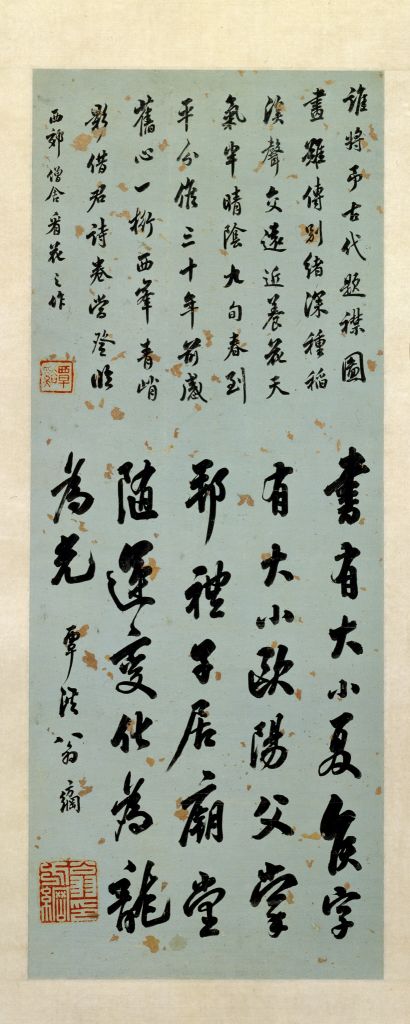 誰將予古代題襟圖
畫雖傳別緒深種稻
溪聲交遠近養花天
氣半晴陰九旬春到
平分候三十年前感
舊心一桁西峯青峭
影借君詩卷當登臨
西郊僧舍看花之作
書有大小夏侯字
有大小歐陽父掌
邢禮子居廟堂
隨運變化為龍
為光
覃溪翁方綱
翁方綱印